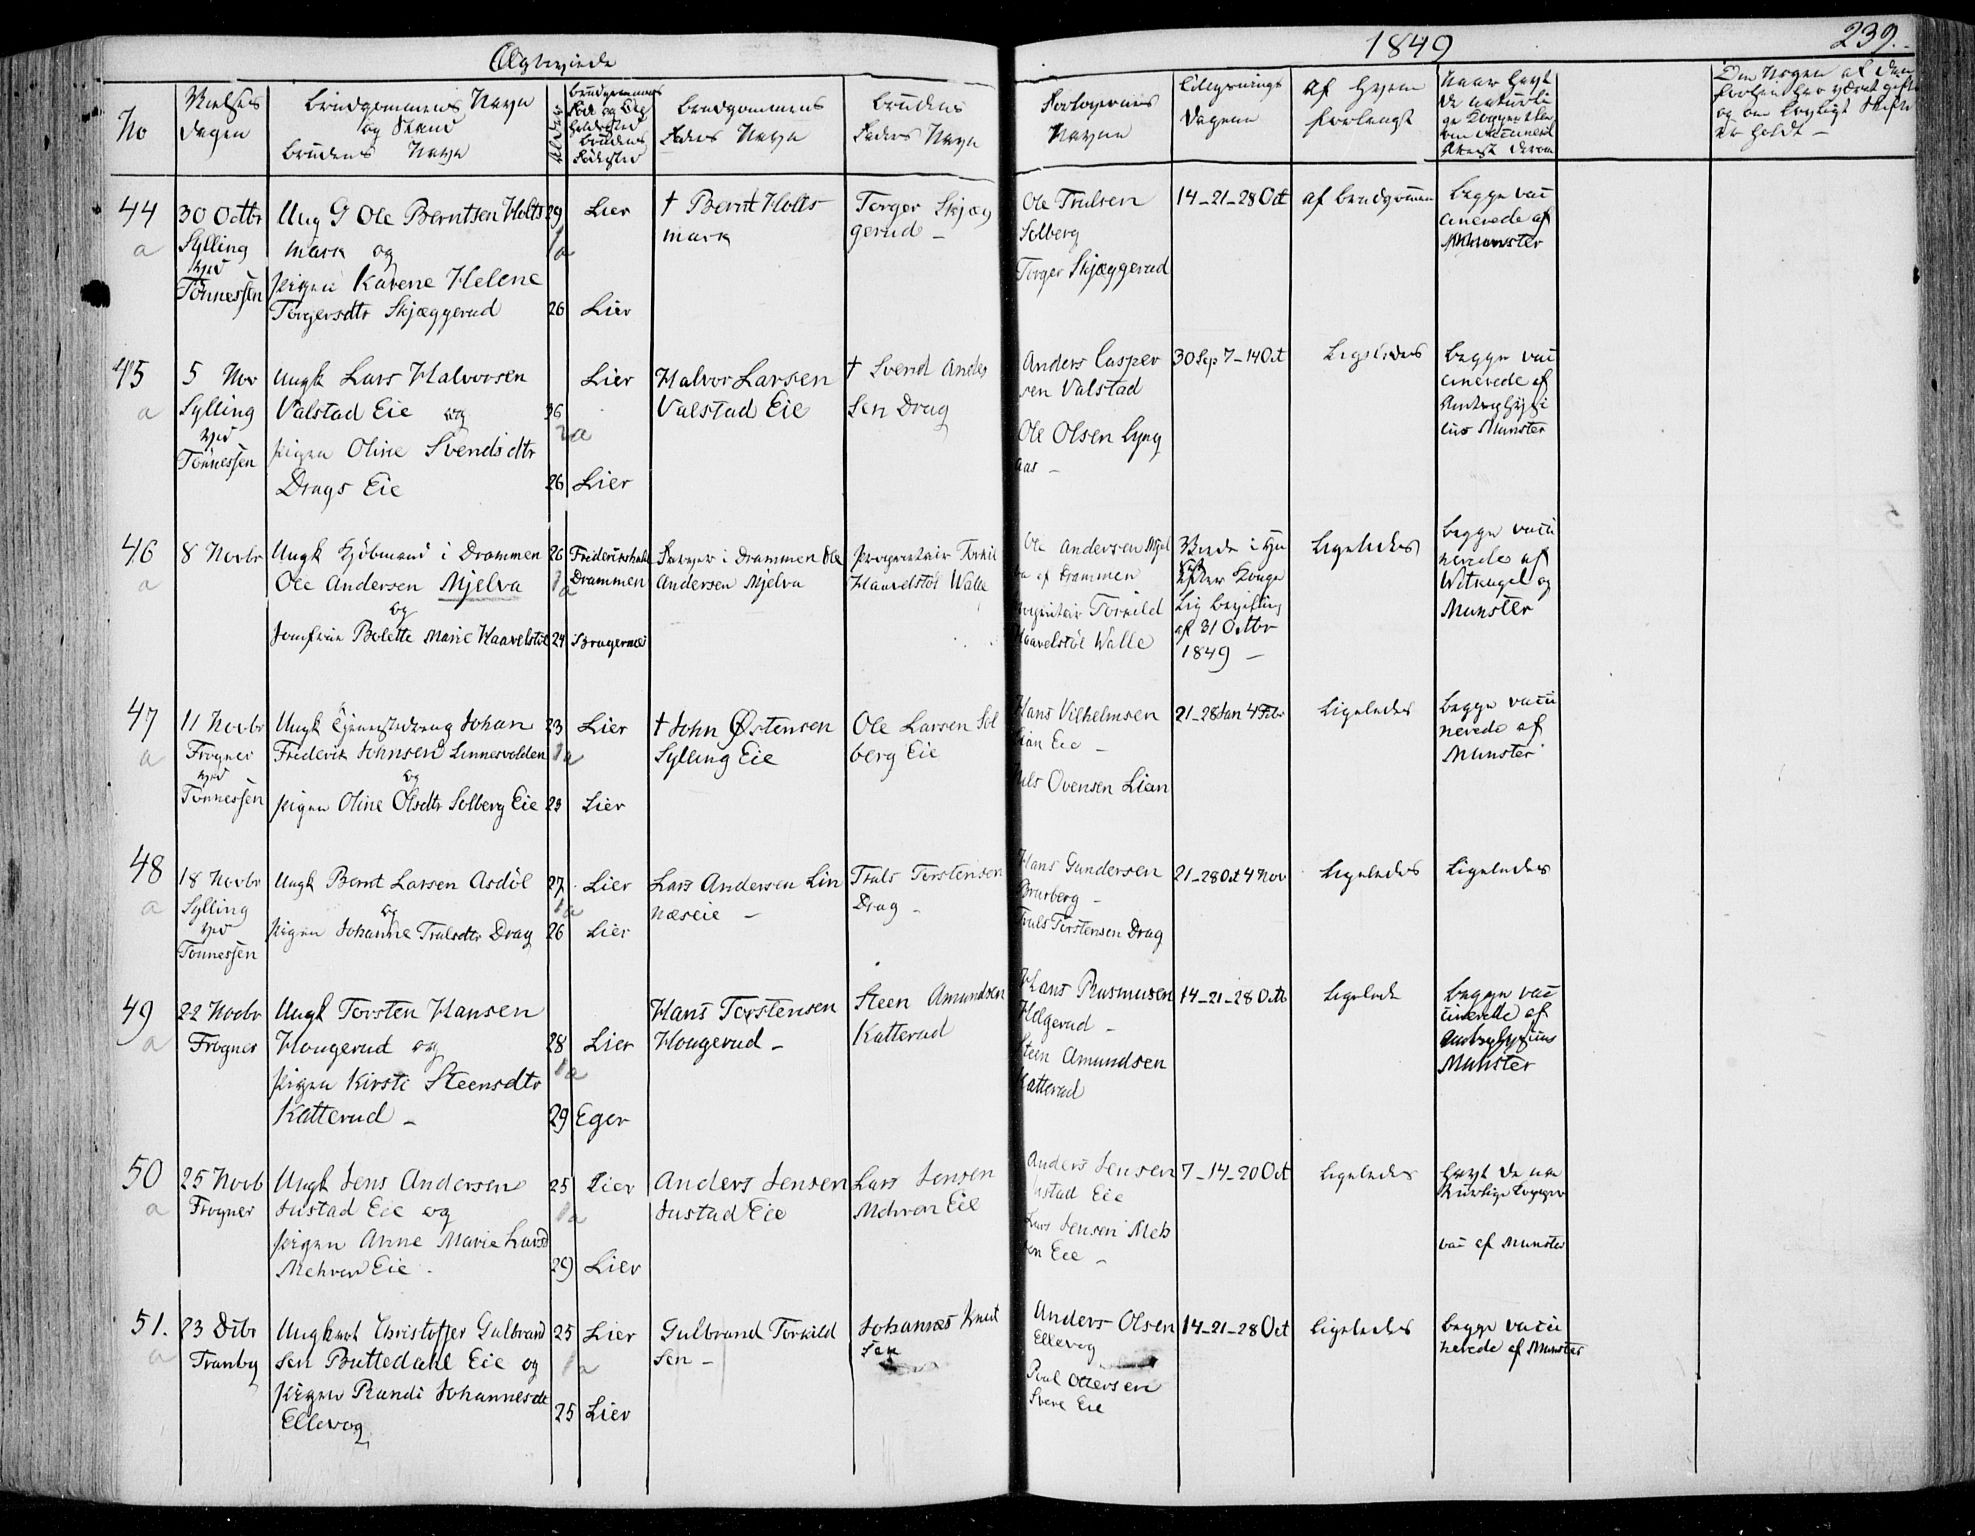 Ægteviede
1849
239.
No
Vielses Dagen
Brudgommens Navn
og Stand
Brudens Navn
Alder
Brudgommens
Fødested
Brudens
Fødested
Brudgommens
Faders Navn
Brudens
Faders Navn
Forlovernes
Navne
Tillysnings
Dagene
Af Hvem
Forlangt
44
a
30 Octbr
Sylling
ved
Tönnessen
Ung G Ole Berntsen Holts
mark og
Pigen Karene Helene
Torgersdtr Skjæggerud
29
1a
26
Lier
Lier
† Bernt Holts
mark
Torger Skjæg
gerud –
Ole Trulsen
Solberg
Torger Skjæggerud
14-21-28 Oct
af Brudgommen
begge vac
cinerede af
Munster
45
a
5 Nov
Sylling
ved
Tönnessen
Ungk Lars Halvorsen
Valstad Eie og
Pigen Oline Svendsdtr
Drags Eie
36
2a
26
Lier
Lier
Halvor Larsen
Valstad Eie
† Svend Ander
sen Drag
Anders Casper
sen Valstad
Ole Olsen Lyng
aas –
30 Sep 7-14 Oct
Ligeledes
begge vac
cinerede af
Munster
46
a
8 Novbr
Ungk Kjøbmand i Drammen
Ole Andersen Mjelva
og
Jomfrue Bolette Marie Haavelstöl
26
1a
24
Frederikshald
Drammen
Bragernæs
i Drammen Ole
Andersen Mjelva
Proprietair Torkil
Haavelstöl Walle
Ole Andersen Mjel
va af Drammen
Proprietair Torkild
Haavelstöl Walle
Viede i Hu
set
efter Konge
lig bevilling
af 31 Octbr
1849 –
Ligeledes
begge vacci
nerede af
og
Munster
47
a
11 Novbr
Frogner
ved
Tönnessen
Ungk Tjenestedreng Johan
Frederik Johnsen Linnesvolden
og
Pigen Oline Olsdtr Solberg Eie
23
1a
23
Lier
Lier
† John Østensen
Sylling Eie
Ole Larsen Sol
berg Eie
Hans Vilhelmsen
Lian Eie –
Nils Ovensen Lian
21-28 Jan 4 Febr
Ligeledes
begge vacci
nerede af
Munster
48
a
18 Novbr
Sylling
ved
Tönnessen
Ungk Bernt Larsen Asdöl
og
Pigen Johanne Trulsdtr Drag
27
1a
26
Lier
Lier
Lars Andersen Lin
næseie –
Truls Torstensen
Drag –
Hans Gundersen
Brurberg –
Truls Torstensen Drag
21-28 Oct 4 Nov
Ligeledes
Ligeledes
49
a
22 Novbr
Frogner
Ungk Torsten Hansen
Hougerud og
Pigen Kirsti Steensdtr
Katterud –
28
1a
29
Lier
Eger
Hans Torstensen
Hougerud –
Steen Amundsen
Katterud
Hans Rasmusen
Helgerud –
Steen Amundsen
Katterud
14-21-28 Octb
Ligelede
begge vac
cinerede af
Munster
50
a
25 Novb
Frogner
Ungk Jens Andersen
Justad Eie og
Pigen Anne Marie Larsd
Mehren Eie
25
1a
29
Lier
Lier
Anders Jensen
Justad Eie
Lars Jensen
Mehren Eie
Anders Jensen
Justad Eie
Lars Jensen Meh
ren Eie –
7-14-20 Oct
Ligeledes
havt de na
turlige Kopper
vac af Munster
51.
a
23 Dcbr
Tranby
Ungkarl Christoffer Gulbrand
sen Buttedahl Eie og
Pigen Randi Johannesdt
Ellevog
25
1a
25
Lier
Lier
Gulbrand Torkild
sen –
Johannes Knut
sen
Anders Olsen
Ellevog
Poul Ottersen
Svere Eie
14-21-28 Oct
Ligeledes
begge vacci
nerede af Munster